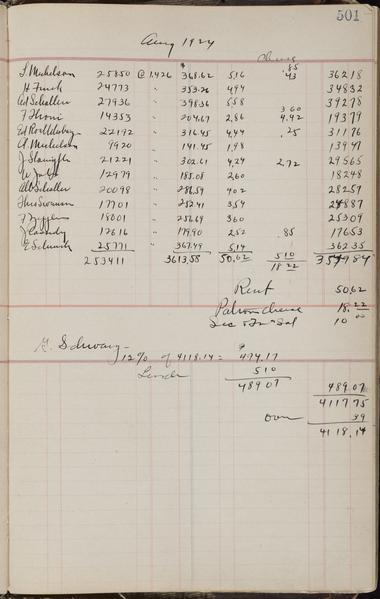 501
Aug 1924
Cheese
.85
J. Mickelson 25850 @ 1.426 $368.62 5.16 .43 362.18
H Finch 24773 " 353.26 4.94 348.32
Ed Schaller 27936 " 398.36 5.58 392.78
3.60
F Thoni 14353 " 204.67 2.86 4.42 193.79
22192 " 316.45 4.44 .25 311.76
A. Mickelson 9920 " 141.45 1.98 139.47
21221 " 302.61 4.24 2.72 295.65
12979 " 185.08 2.60 182.48
Alb Schaller 20098 " 286.59 4.02 282.57
Theo Swanson 17701 " 252.41 3.54 248.87
18001 " 256.69 3.60 253.09
J Cassidy 12616 " 179.90 2.52 .85 176.53
E Schmidt 25771 " 367.49 5.14 362.35
253411 3613.58 50.62 5.10 18.22 3549.84
Rent 50.62
Patrons Cheese 18.22
Sec & Tr Sal 10.00
G. Schwarz
12% of 4118.14 = $494.17
5.10
489.07 489.07
4117.75
over .39
4118.14